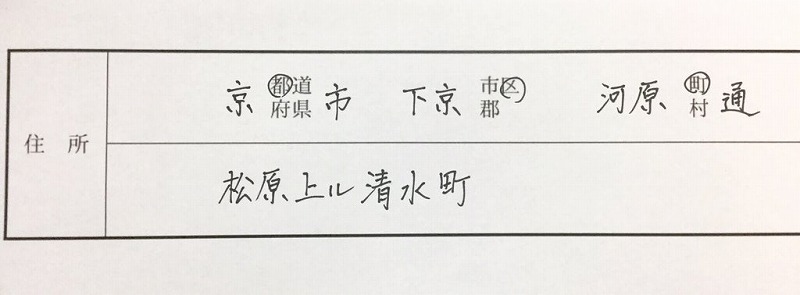 京 都道府県 市 下京 市区郡 河原 町村 通
住所
松原上ル清水町